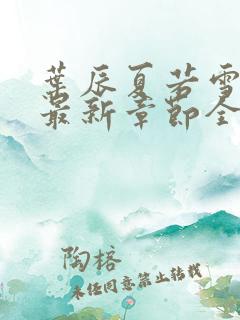 葉辰夏若雪
最新章節全
陶榕
未任同意禁止转载